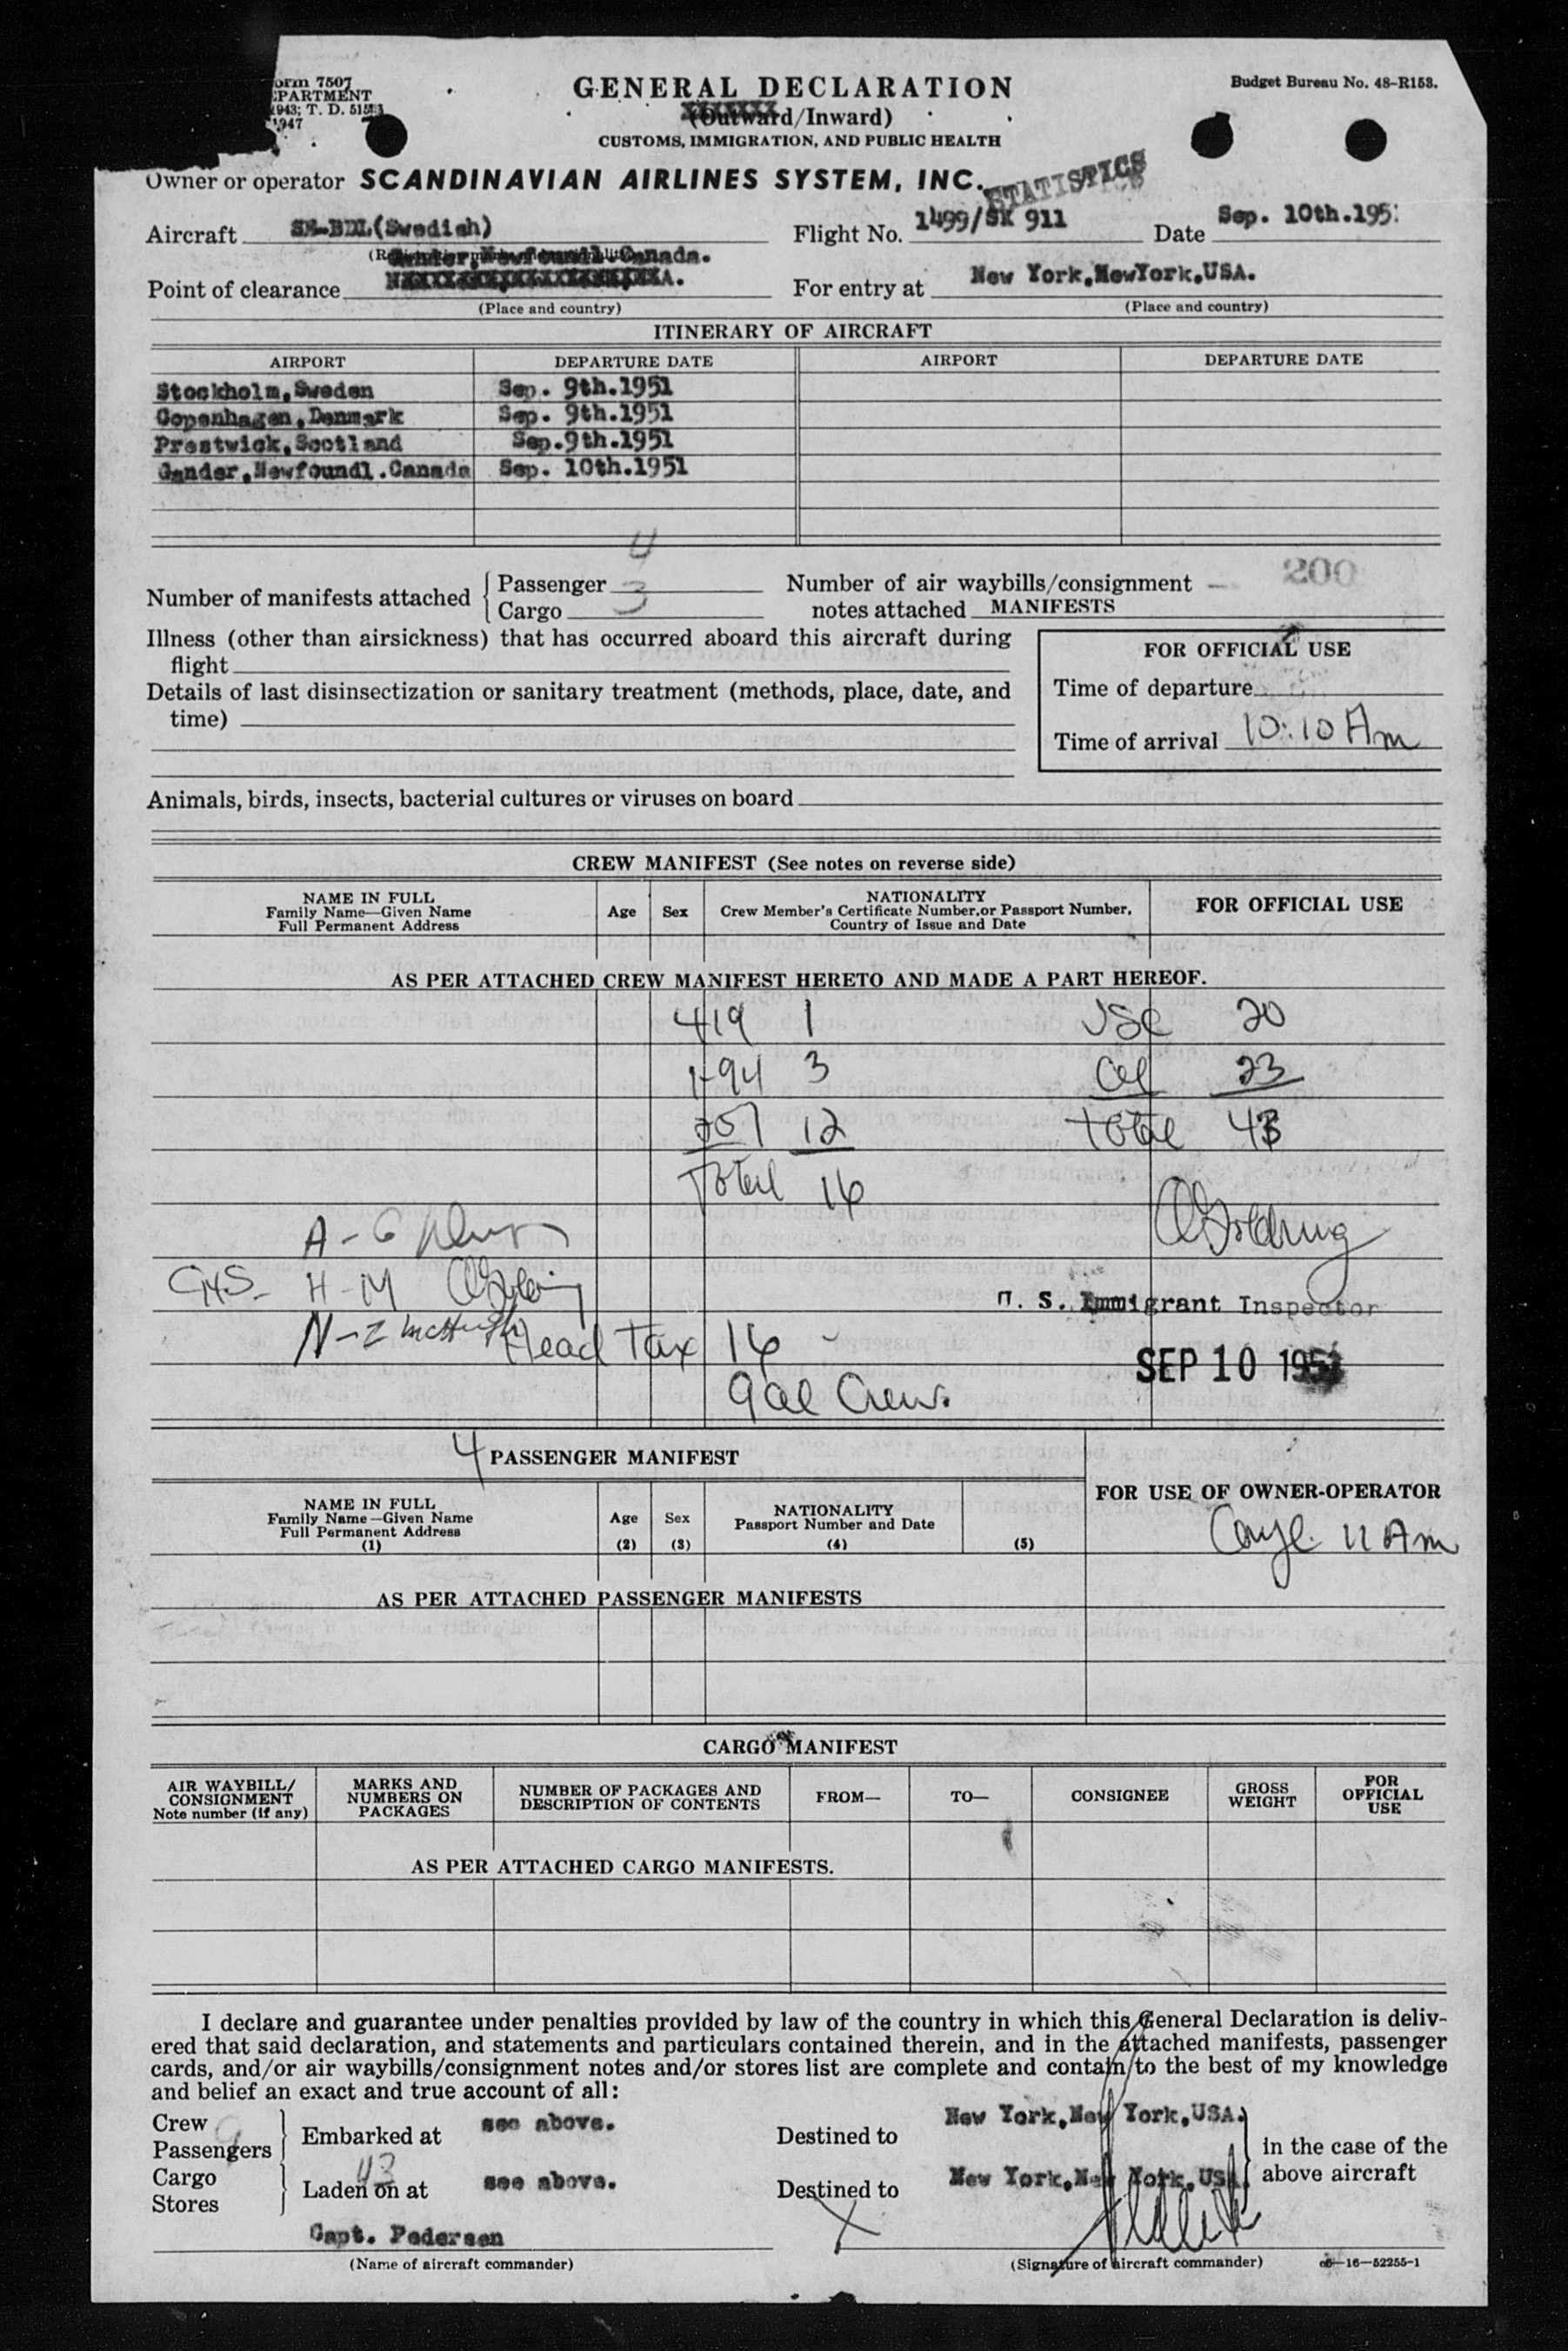 orm 7507
PARTMENT
1943; T. D. 51
1947
GENERAL DECLARATION
(Outward/Inward)
CUSTOMS, IMMIGRATION, AND PUBLIC HEALTH
Budget Bureau No. 48-R153.
Owner or operator SCANDINAVIAN AIRLINES SYSTEM, INC.
STATISTICS
Aircraft SE-BDL(Swedish)
Flight No. 1499/SK 911 Date Sep. 10th.195
Gander, Newfoundl. Canada.
Point of clearance
For entry at New York,NewYork,USA.
(Place and country) (Place and country)
ITINERARY OF AIRCRAFT
AIRPORT DEPARTURE DATE AIRPORT DEPARTURE DATE
Stockholm,Sweden Sep. 9th.1951
Copenhagen,Denmark Sep. 9th.1951
Prestwick,Scotland Sep.9th.1951
Gander,Newfoundl.Canada Sep. 10th.1951
4
Number of manifests attached Passenger
Cargo 3
Number of air waybills/consignment — 200
notes attached MANIFESTS
Illness (other than airsickness) that has occurred aboard this aircraft during
flight
Details of last disinsectization or sanitary treatment (methods, place, date, and
time)
FOR OFFICIAL USE
Time of departure
Time of arrival 10:10 Am
Animals, birds, insects, bacterial cultures or viruses on board
CREW MANIFEST (See notes on reverse side)
NAME IN FULL
Family Name—Given Name
Full Permanent Address
Age
Sex
NATIONALITY
Crew Member's Certificate Number,or Passport Number,
Country of Issue and Date
FOR OFFICIAL USE
AS PER ATTACHED CREW MANIFEST HERETO AND MADE A PART HEREOF.
419 1 USC 20
1-94 3 Al 23
257 12 total 43
Total 16
A-G
H-M
N-Z McHugh
Head Tax 16
9 al Crew.
U. S. Immigrant Inspector
SEP 10 1951
4 PASSENGER MANIFEST
NAME IN FULL
Family Name—Given Name
Full Permanent Address
(1)
Age
(2)
Sex
(3)
NATIONALITY
Passport Number and Date
(4)
(5)
FOR USE OF OWNER-OPERATOR
11 Am
AS PER ATTACHED PASSENGER MANIFESTS
CARGO MANIFEST
AIR WAYBILL/
CONSIGNMENT
Note number (if any)
MARKS AND
NUMBERS ON
PACKAGES
NUMBER OF PACKAGES AND
DESCRIPTION OF CONTENTS
FROM—
TO—
CONSIGNEE
GROSS
WEIGHT
FOR
OFFICIAL
USE
AS PER ATTACHED CARGO MANIFESTS.
I declare and guarantee under penalties provided by law of the country in which this General Declaration is deliv-
ered that said declaration, and statements and particulars contained therein, and in the attached manifests, passenger
cards, and/or air waybills/consignment notes and/or stores list are complete and contain to the best of my knowledge
and belief an exact and true account of all:
Crew 9
Passengers
Embarked at see above. Destined to New York,New York,USA.
in the case of the
above aircraft
Cargo 43
Stores
Laden on at see above. Destined to New York,New York,USA
Capt. Pedersen
(Name of aircraft commander)
X
(Signature of aircraft commander)
16—52255-1